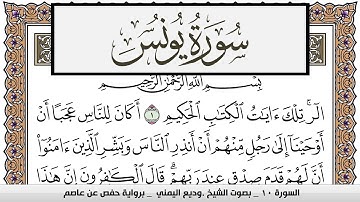 سُورَةُ يُونُسَ
بِسْمِ اللَّهِ الرَّحْمَٰنِ الرَّحِيمِ
الٓرۚ تِلْكَ ءَايَٰتُ ٱلْكِتَٰبِ ٱلْحَكِيمِ ١ أَكَانَ لِلنَّاسِ عَجَبًا أَنْ
أَوْحَيْنَآ إِلَىٰ رَجُلٍ مِّنْهُمْ أَنْ أَنذِرِ ٱلنَّاسَ وَبَشِّرِ ٱلَّذِينَ ءَامَنُوٓا۟
أَنَّ لَهُمْ قَدَمَ صِدْقٍ عِندَ رَبِّهِمْۗ قَالَ ٱلْكَٰفِرُونَ إِنَّ هَٰذَا
السورة ١٠ _ بصوت الشيخ .وديع اليمني _ برواية حفص عن عاصم